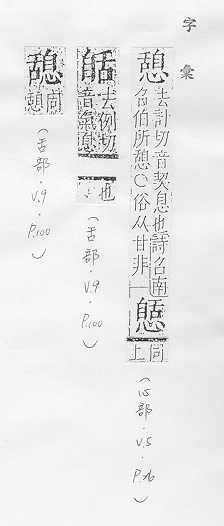 字彙
憩
去計切音契息也詩召南
召伯所憩○俗从甘非
同
上
(心部.v.5.P.16)
去例切
音氣息
也
(舌部.v.9.P.100)
同
(舌部.v.9.P.100)